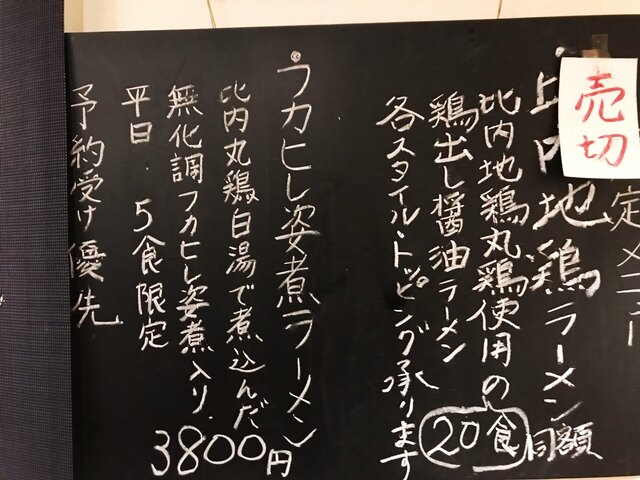 売切
定メニュー
比内地鶏ラーメン 同額
比内地鶏丸鶏使用の
鶏出し醤油ラーメン 20食
各スタイル・トッピング承ります
・フカヒレ姿煮ラーメン
比内丸鶏白湯で煮込んだ
無化調フカヒレ姿煮入り
3800円
平日 5食限定
予約受け優先